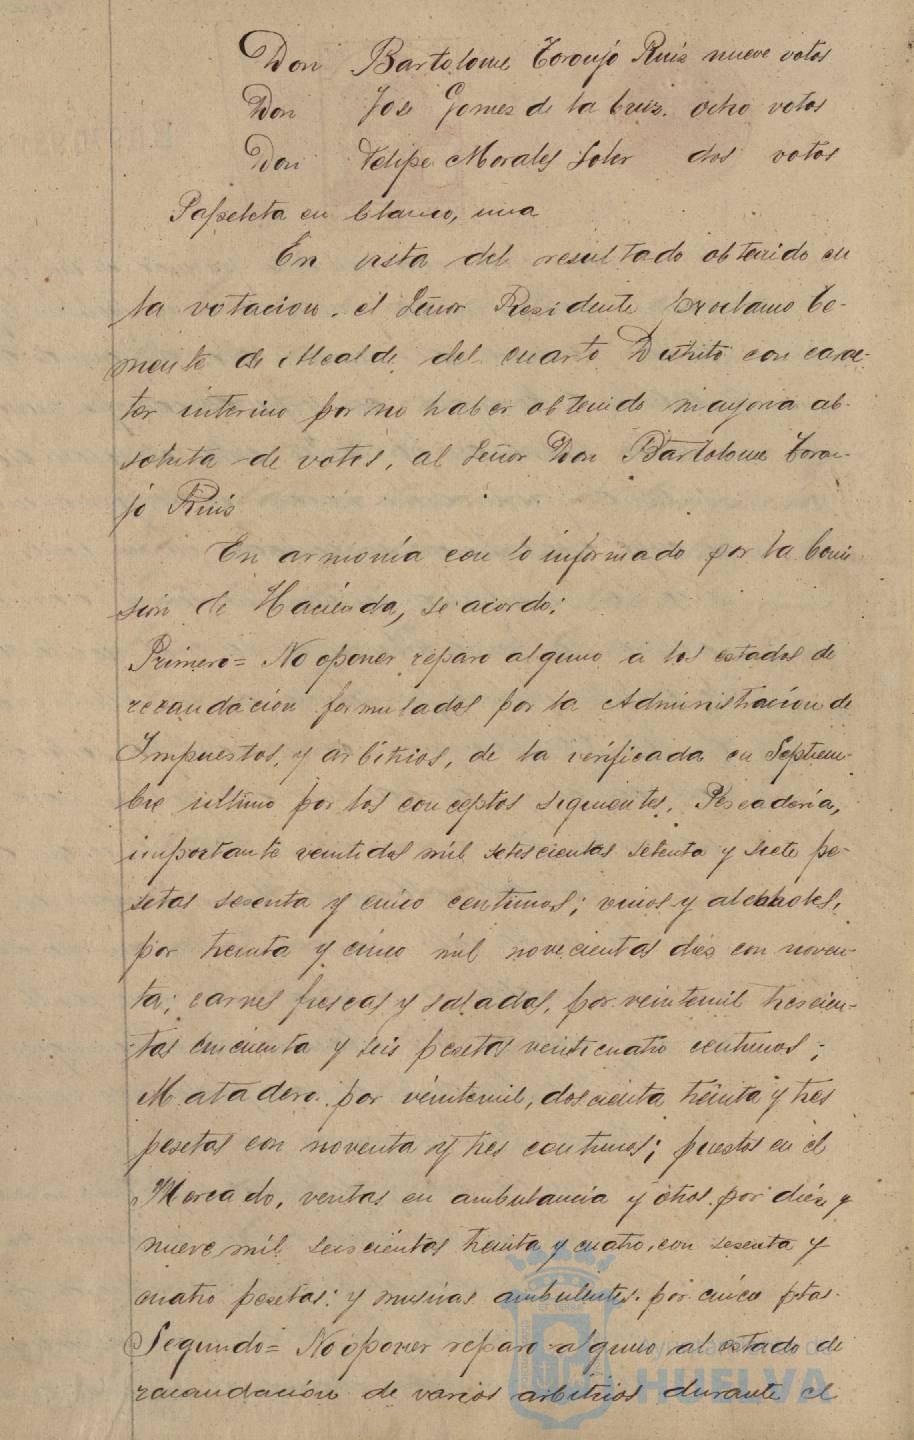 Don Bartolome Toronjo Ruiz nueve votos
Don Jose Gomez de la Cruz. ocho votos
Don Felipe Morales Soler dos votos
Papeleta en blanco, una
En vista del resultado obtenido en
la votacion. el Señor Presidente proclamo Te-
niente de Alcalde del cuarto Distrito con carac-
ter interino por no haber obtenido mayoria ab-
soluta de votos, al Señor Don Bartolome Toron-
jo Ruis
En armonía con lo informado por la Comi
sion de Hacienda, se acordo:
Primero= No oponer reparo alguno a los estados de
recaudacion formulados por la Administracion de
Impuestos, y arbitrios, de la verificada en Septiem-
bre ultimo por los conceptos siguientes. Pescadería,
importante veintidos mil setescientas setenta y siete pe-
setas sesenta y cinco centimos; vinos y alcoholes,
por treinta y cinco mil novecientas diez con noven-
ta; carnes frescas y saladas, por veintemil trescien-
tas cincuenta y seis pesetas veinticuatro centimos;
Matadero por veintemil, doscienta treinta y tres
pesetas con noventa y tres centimos; puestos en el
Mercado, ventas en ambulancia y otros por diez y
nueve mil seiscientas treinta y cuatro, con sesenta y
cuatro pesetas: y musicas ambulantes. por cinco ptas.
Segundo= No oponer reparo alguno al estado de
recaudación de varios arbitrios durante el
Ayuntamiento de
HUELVA